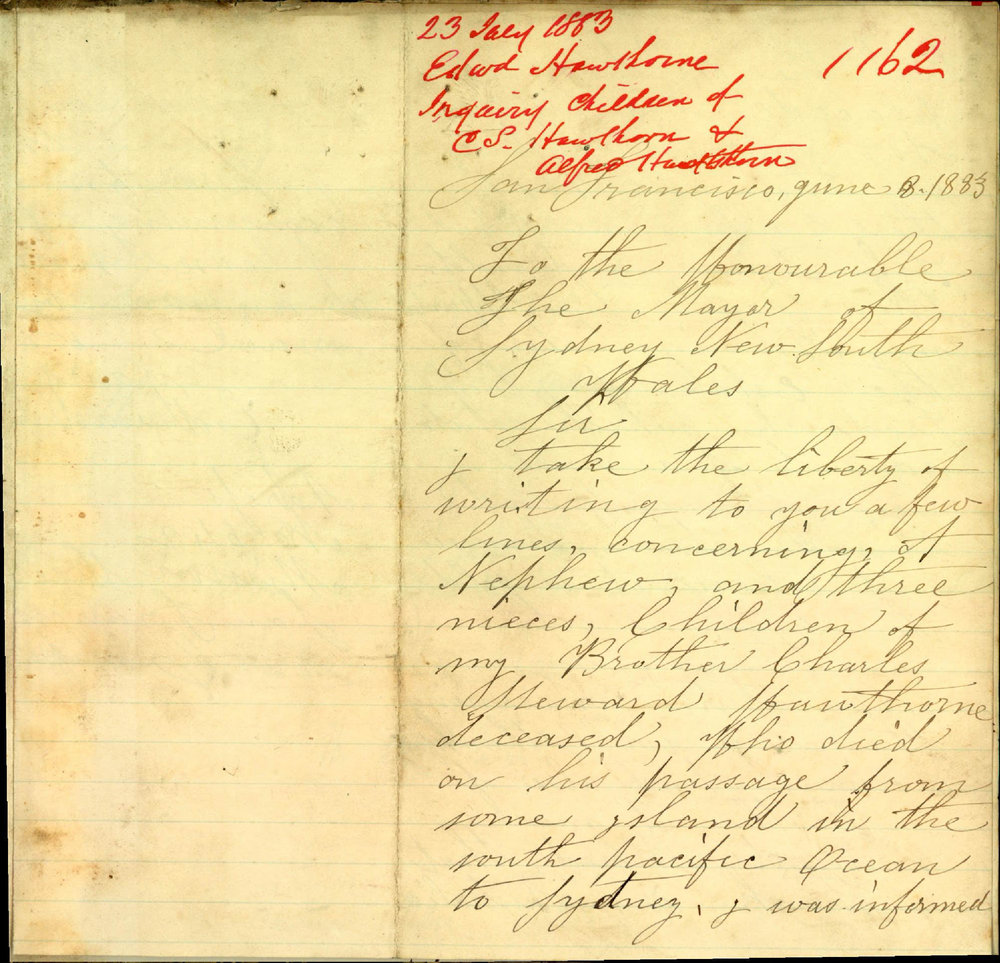 23 July 1883
Edwd Hawthorne
1162
Inquiry Children of
C S. Hawthorn &
Alfred Hawthorn
San Francisco, june 8. 1883
To the Honourable
The Mayor of
Sydney New. South
Wales
Sir
I take the liberty of
writing to you a few
lines, concerning, A
Nephew, and three
nieces, Children of
my Brother Charles
Steward Hawthorne
deceased, Who died
on his passage from
some island in the
south pacific Ocean
to Sydney, I was informed